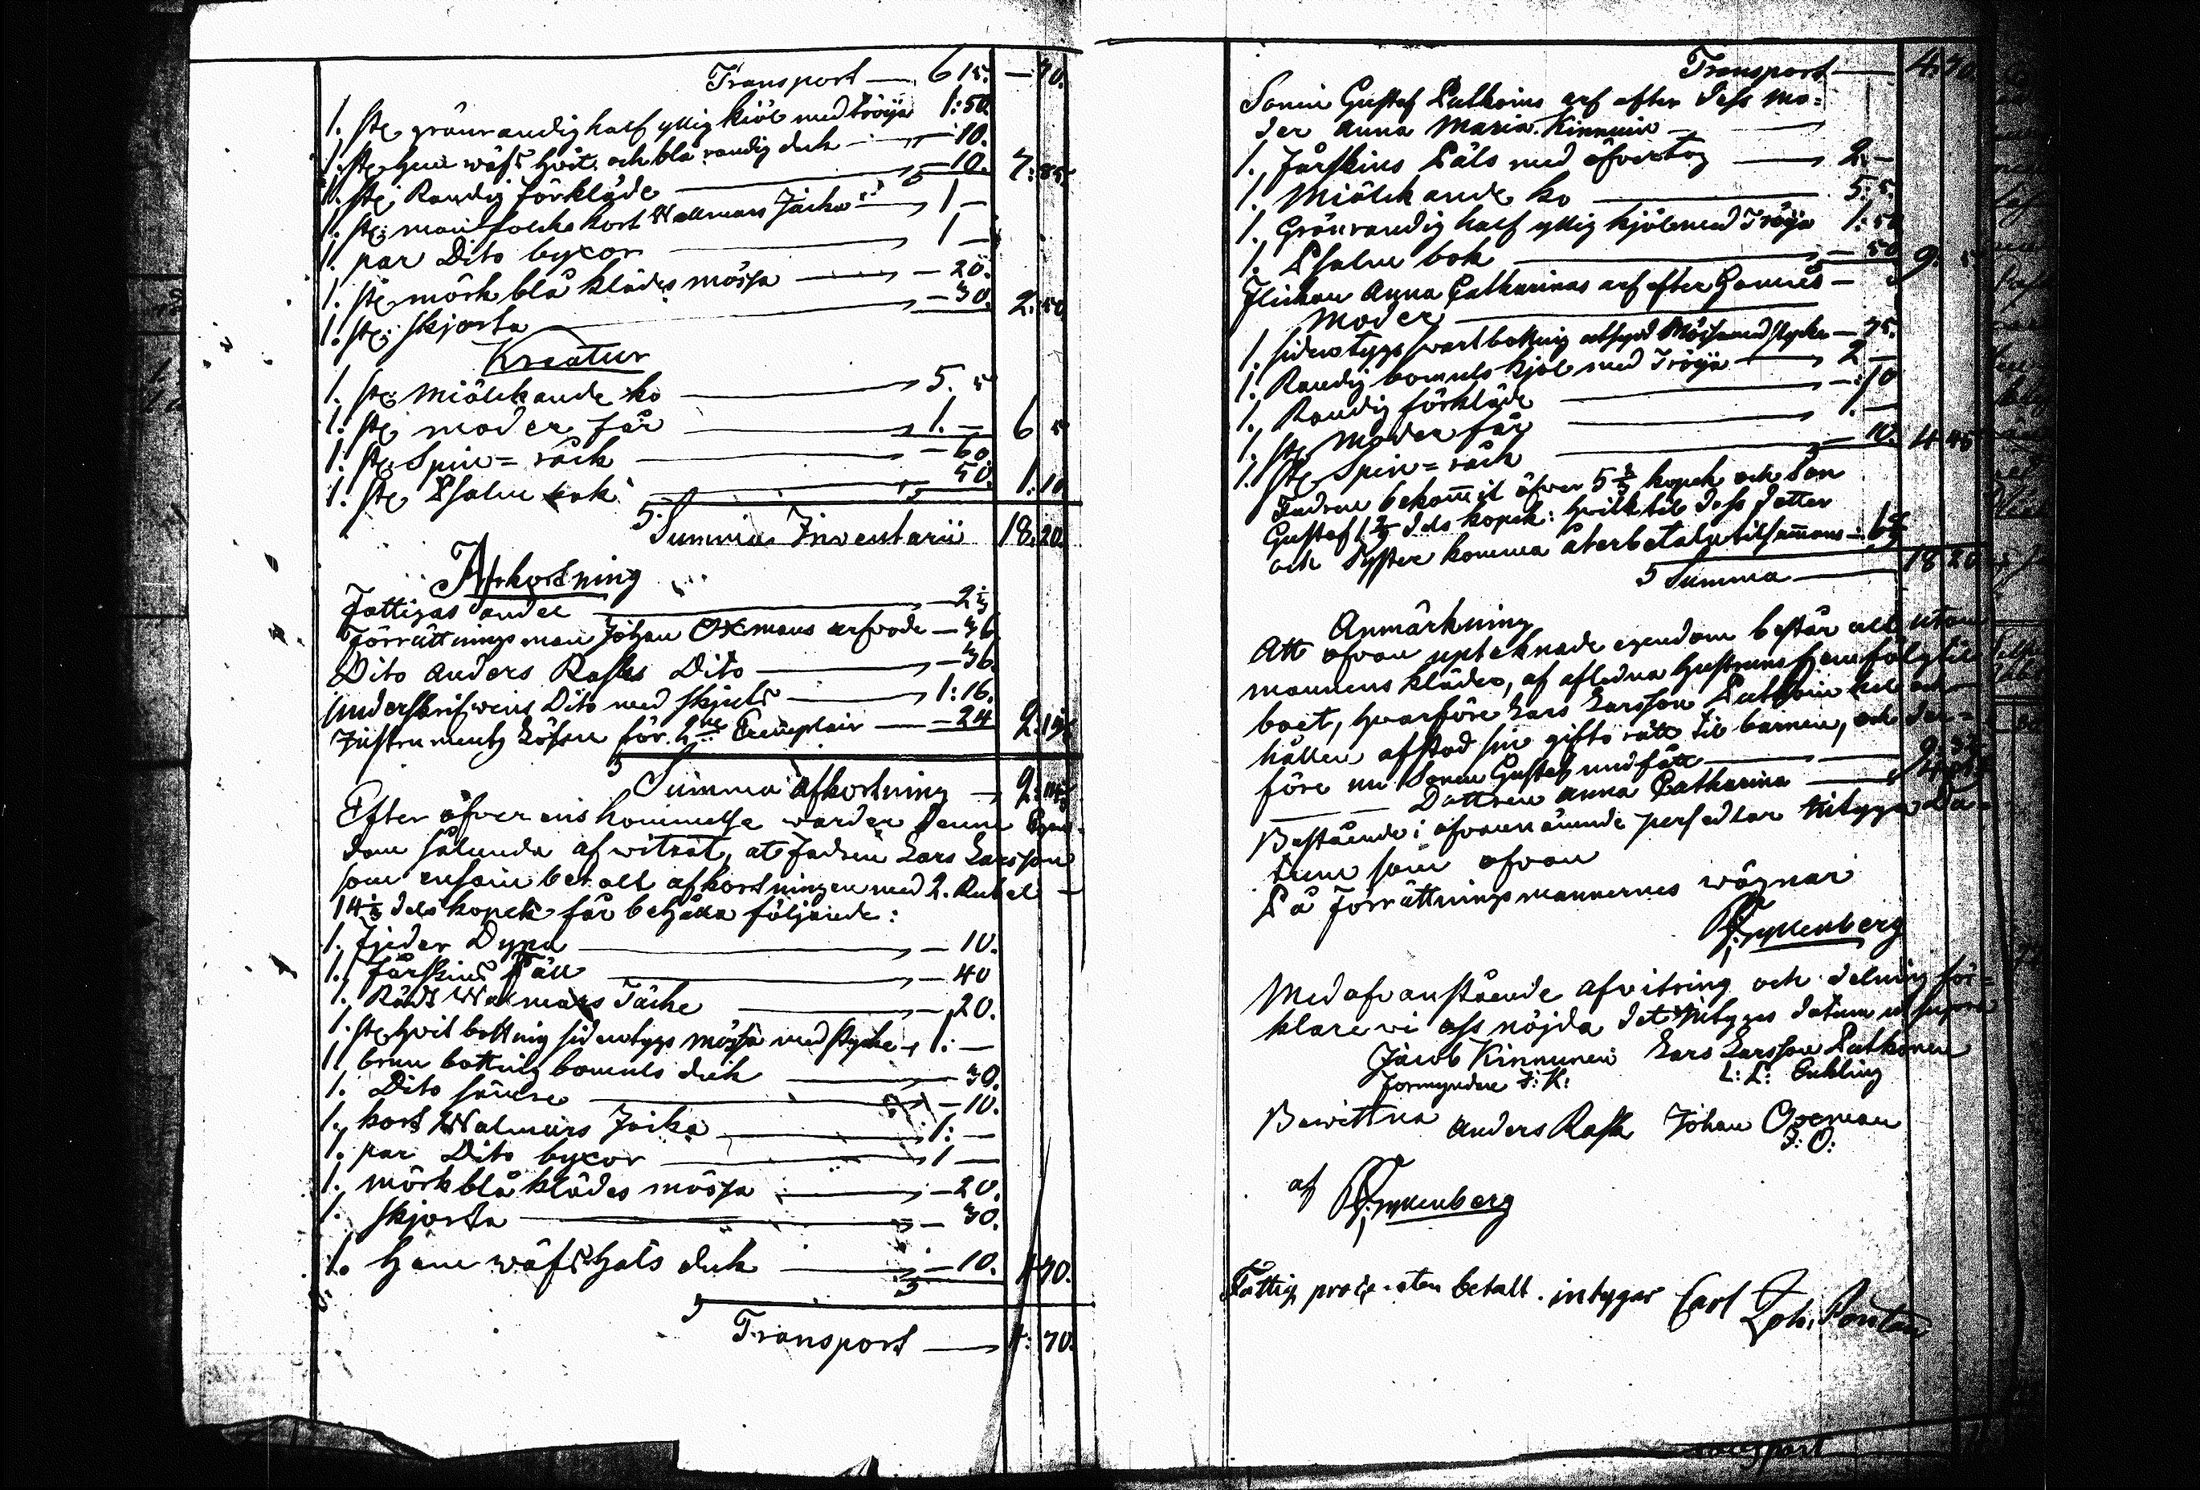 Transport — 6 15. — 70.
1. st. grönrandig half yllig kiöl med tröija 1:50.
1. st. hem wäft hvit och blå randig duk — 10.
1. st. Randig Förkläde — 10. 7:85
1. st. mans folcks kort Wallmars Jacka 1 —
1. par Dito byxor 1 —
1. st. mörk blå klädes mössa — 20.
1. st. skjorta — 30. 2:50
Kreatur
1. st. miölckande ko 5. 5
1. st. moder får 1. — 6 5
1. st. Spin=råck — 60.
1. st. Psalm bok 50. 1:10
Summa Inventarii 18.20.
Afkortning
Fattigas andel — 2
Förrättningsman Johan Oxmans arfvode — 36
Dito Anders Rasks Dito — 36.
Underskrifwens Dito med skjuts — 1:16.
Instrumentz Lösen för 2ne Exemplair — 24
Summa Afkortning
Efter öfverenskommelse warder denne Egen-
dom sålunda afwitrat, at Fadren Lars Larsson
som ensam betalt afkortningen med 2. Rubel
14 dels kopek får behålla följande:
1. Fjeder Dyna — 10.
1. Fårskins Fäll — 40
1. Rådt Walmars Täcke — 20.
1. st. hvit bottnig sidentygs mössa med stycke 1: —
1. brun bottnig bomuls duk — 30.
1. Dito sämre — 10.
1. kort Walmars Jacka 1: —
1. par Dito byxor 1 —
1. mörkblå klädes mössa — 20.
1. skjorta — 30.
1. Hem wäft Hals duk — 10. 4 70.
Transport 4: 70.
Transport 4:70
Sonen Gustaf Puthoins arf efter dess mo-
der Anna Maria Kinnuin
1. Fårskins Päls med öfvertog 2. —
1. Miölckande ko 5:5
1. Grönrandig half yllig kjól med Tröija 1:50
1. Psalm bok — 50 9.
Flickan Anna Catharinas arf efter Hennes
Moder
1. sidentygs svartbottnig mössa med stycke — 75.
1. Randig bomuls kjól med Tröija 2 —
1. Randig förkläde — 10
1. st. Moder får 1. —
1. st. Spin=råck 4 45
Fadren bekommit öfver 5 kopek och Son
Gustaf 1 dels kopek: hvilk til dess dotter
och Syster komma återbetala tilsammans
Summa 18 20
Anmärkning
Att ofvan uptecknade egendom består all utom
mannens kläder, af aflidna Hustruns hemfölg til
boet, hvarföre Lars Larsson Puthoin hel och
hållen afstod sin gifto rätt til barnen, och der-
före nu Sonen Gustaf undfått
Dottren Anna Catharina
Bestående i ofvannämnde persedlar intygga Da-
tum som ofvan
På Förrättningsmannernes wägnar
Med ofvanstående afvitring och delning för-
klare vi oss nöjda det intygas datum ut supra
Jacob Kinnunen Lars Larsson Puthonen
Formyndre J: K: L: L: Enkling
Bewittna Anders Rask Johan Oxman
J: O:
af
Fattig procenten betalt. intygar Carl Joh. Pontan